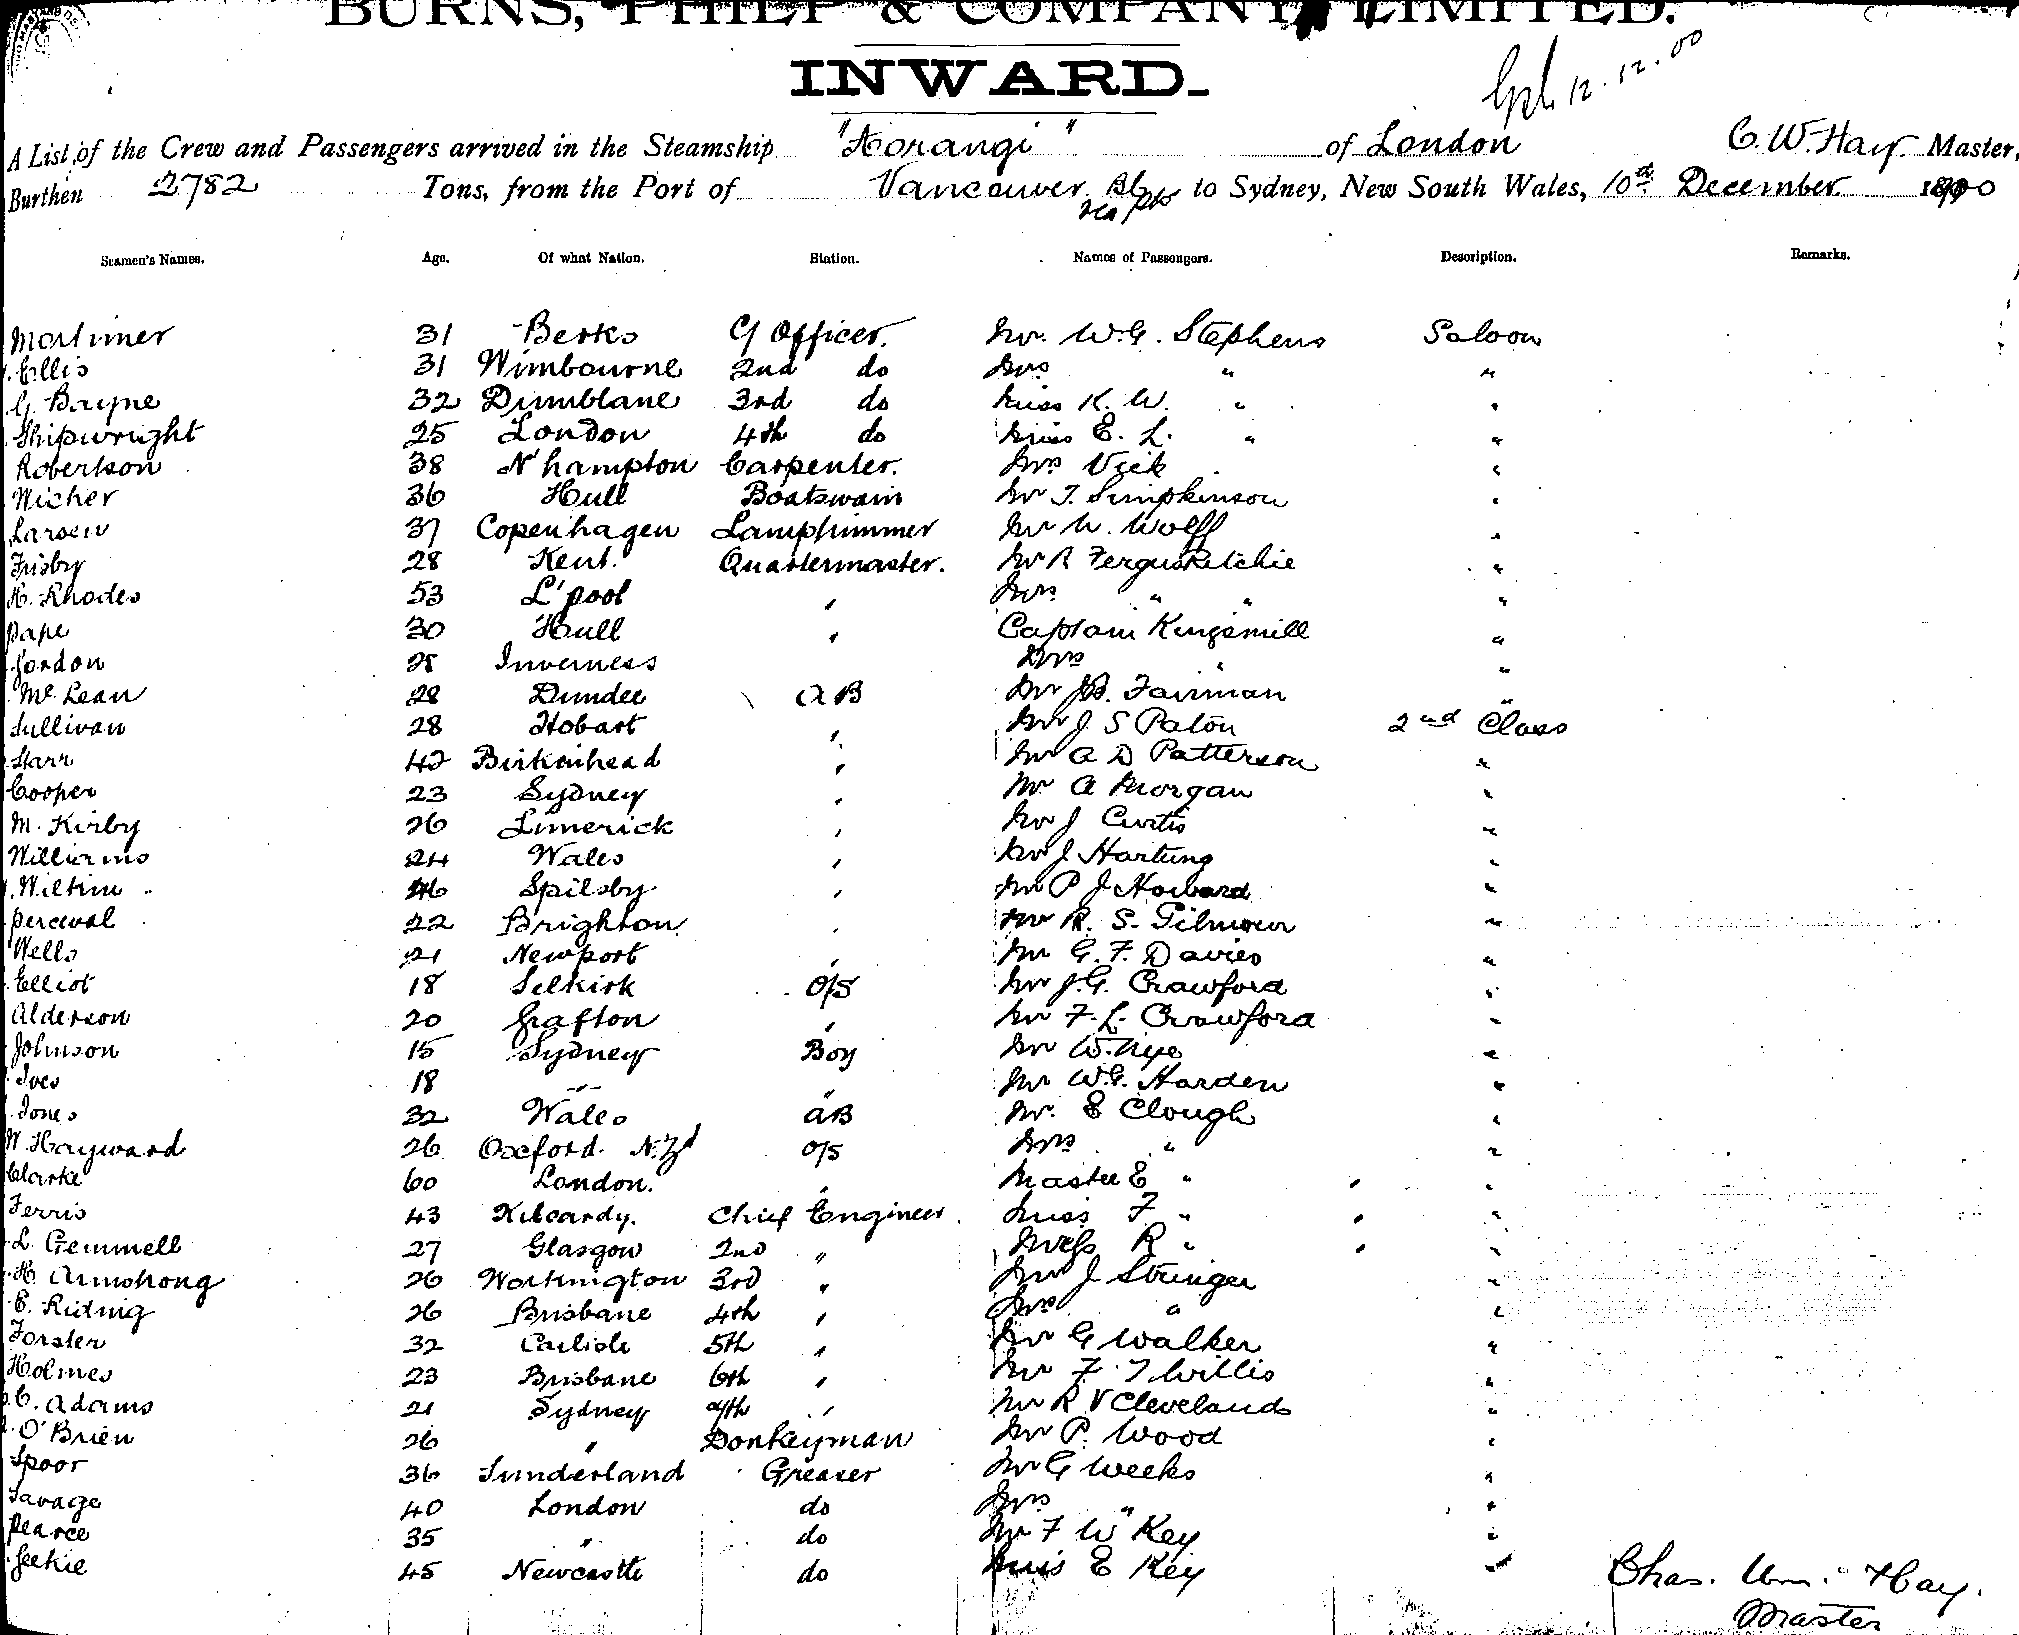 BURNS, PHILP & COMPANY, LIMITED.
INWARD.
12.12.00
A List of the Crew and Passengers arrived in the Steamship "Aorangi" of London C. W. Hay. Master,
Burthen 2782 Tons, from the Port of Vancouver to Sydney, New South Wales, 10th December 1900
Seamen's Names. Age. Of what Nation. Station. Names of Passengers. Description. Remarks.
Mortimer 31 Berks Officer. Mr. W.G. Stephens Saloon
Ellis 31 Wimbourne 2nd do Mrs " "
G. Bayne 32 Dumblane 3rd do Miss K. W. " "
Shipwright 25 London 4th do Miss E. L. " "
Robertson 38 N'hampton Carpenter. Mrs Vick "
Wicher 36 Hull Boatswain Mr T. Simpkinson "
Larsen 37 Copenhagen Lamptrimmer Mr W. Wolff "
Frisby 28 Kent. Quartermaster. Mr R Fergus Ritchie "
H. Rhodes 53 L'pool " Mrs " " "
Pape 30 Hull " Captain Kingsmill "
Gordon 28 Inverness Mrs " "
McLean 28 Dundee AB Mr Fairman "
Sullivan 28 Hobart " Mr J S Paton 2nd Class
Starr 42 Birkinhead " Mr A D Patterson "
Cooper 23 Sydney " Mr A Morgan "
M. Kirby 26 Limerick " Mr J Curtis "
Williams 24 Wales " Mr J Hartung "
Wiltin 46 Spilsby " Mr P J Howard "
Perceval 22 Brighton " Mr R. S. Gilmour "
Wells 21 Newport " Mr G. F. Davies "
Elliot 18 Selkirk O/S Mr J. G. Crawford "
Alderson 20 Grafton " Mr F. L. Crawford "
Johnson 15 Sydney Boy Mr W. Nye "
Ives 18 " " Mr W.G. Harden "
Jones 32 Wales AB Mr. E Clough "
W. Hayward 26 Oxford. N.Zd O/S Mrs " "
Clarke 60 London. " Master E " "
Ferris 43 Kilcardy. Chief Engineer. Miss F " "
L. Gemmell 27 Glasgow 2nd " Miss R " "
H. Armstrong 26 Workington 3rd " Mr J Stringer "
E. Riding 26 Brisbane 4th " Mrs " "
Forster 32 Carlisle 5th " Mr G Walker "
Holmes 23 Brisbane 6th " Mr F. T Willis "
C. Adams 21 Sydney 7th " Mr R V Clevelands "
O'Brien 26 " Donkeyman Mr P. Wood "
Spoor 36 Sunderland Greaser Mr G Weeks "
Savage 40 London do Mrs " "
Pearce 35 " do Mr F W Key "
Geekie 45 Newcastle do Miss E Key "
Chas. Wm. Hay.
Master